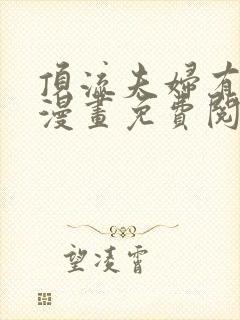 頂流夫婦有
漫畫免費閱
望凌霄